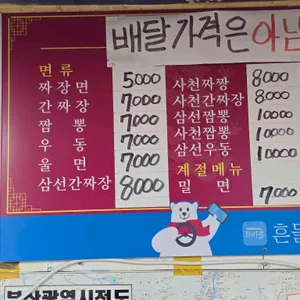 배달 가격은 아님
면 류
짜 장 면 5000
간 짜 장 7000
짬 뽕 7000
우 동 7000
울 면 7000
삼선간짜장 8000
사천짜짱 8000
사천간짜장 8000
삼선짬뽕 10000
사천짬뽕 10000
삼선우동 10000
계절메뉴
밀 면 7000
부산광역시전도